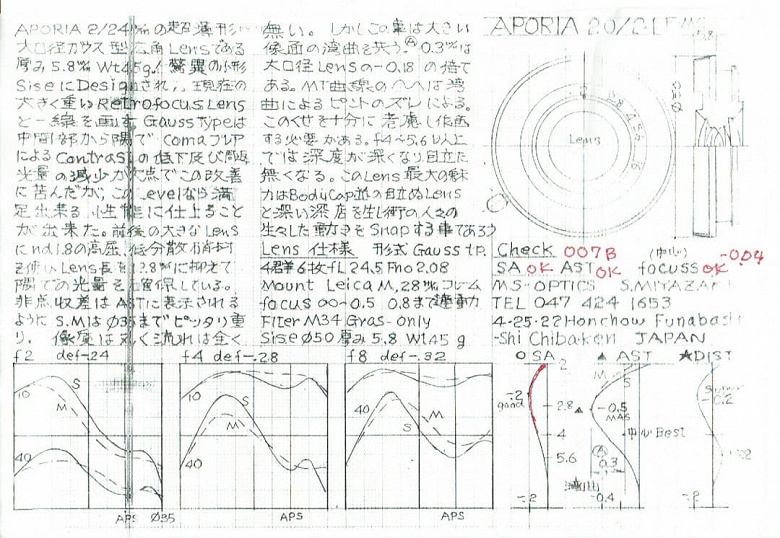 APORIA 2/24㎜の超薄形
大口径ガウス型広角Lensである
厚み5.8㎜ Wt45g! 驚異の小形
SiseにDesignされ, 現在の
大きく重いRetrofocus Lens
と一線を画す Gauss typeは
中間部から隅で comaフレア
によるContrastの低下及び周辺
光量の減少が欠点でこの改善
に苦んだが,このLevelなら満
足出来る性能に仕上ること
が出来た。前後の大きなLens
にnd1.8の高屈,低分散硝材
を使いLens長を12.8㎜に抑えて
隅での光量を確保している。
非点収差はASTに表示される
ように S.MはΦ35までピッタリ重
り, 像度は丸く流れは全く
無い。しかしこの事は大きい
像面の湾曲を失う。Ⓐ0.3㎜は
大口径Lensの-0.18の倍で
ある。MT曲線の へへは湾
曲によるピントのズレによる。
このくせを十分に考慮し作画
する必要がある。f4~5.6以上
では深度が深くなり目立た
無くなる。このLens最大の魅
力はBodyCap並の目立ぬLens
と深い深度を生し街の人々の
生々した動きをSnapする事であろう
Lens 仕様 形式 Gauss tp.
4群6枚 fL 24.5 Fno 2.08
Mount Leica M, 28㎜フレーム
focus ∞~0.5 0.8まで連動
Filter M34 Gras-only
Sise Φ50 厚み5.8 Wt.45g
APORIA 20/2
5.8
Φ50
2.8 4 5.6 8
Lens
Check 007B (中心) -0.04
SA OK AST OK focuss OK
MS-OPTICS S.MIYAZAKI
TEL 047 424 1653
4-25-22 Honchow Funabashi
-Shi Chibaken JAPAN
f2 def-.24
10
S
M
40
APS Φ35
f4 def-.28
S
M
40
APS
f8 def-.32
10
M
S
40
APS
○SA ▲AST ★DIST
2
-.2
good
2.8
4
5.6
8
-.2
M
S
-0.5
MAS
中心Best
Ⓐ
0.3
湾曲
-0.4
-0.2
-.2